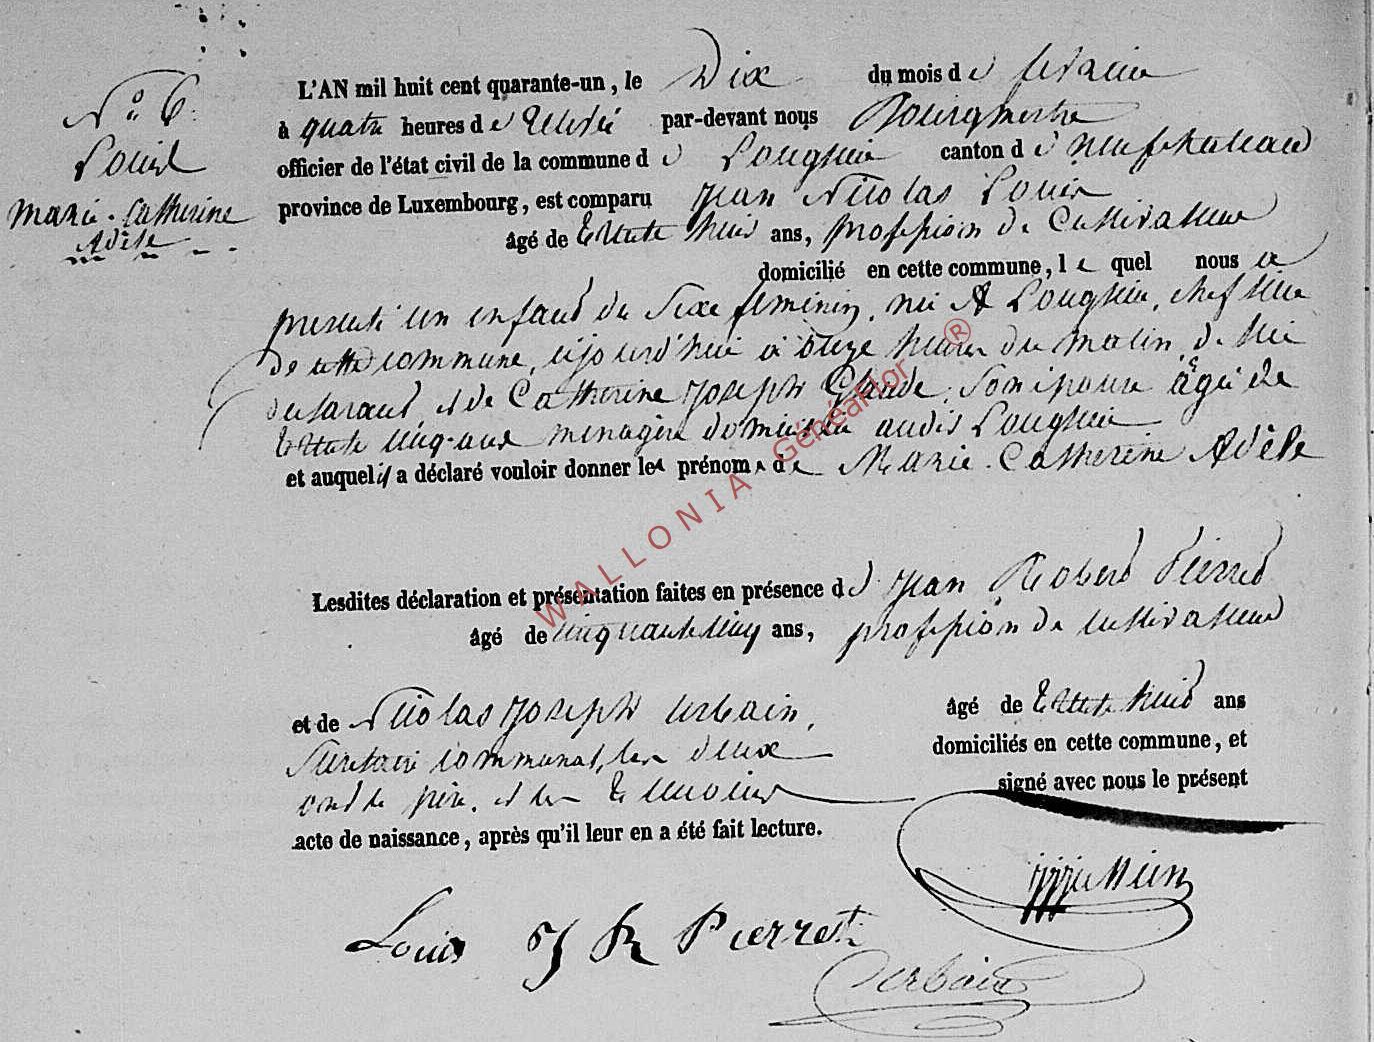 N° 6.
Louis
Marie-Catherine
Adèle
L'AN mil huit cent quarante-un, le Dix du mois de février
à quatre heures de relevée par-devant nous Bourgmestre
officier de l'état civil de la commune de Longlier canton de Neufchateau
province de Luxembourg, est comparu Jean Nicolas Louis
âgé de trente huit ans, profession de Cultivateur
domicilié en cette commune, le quel nous a
présenté un enfant du Sexe féminin, né A Longlier, chef lieu
de cette commune, à onze heures du matin, de lui
déclarant, et de Catherine Joseph son épouse âgée de
trente cinq ans ménagère domiciliée audit Longlier
et auquel il a déclaré vouloir donner les prénoms de Marie-Catherine Adèle
Lesdites déclaration et présentation faites en présence de Jean Robert Pierret
âgé de ans, profession de cultivateur
et de Nicolas Joseph Urbain, âgé de trente huit ans
Secrétaire communal, les deux domiciliés en cette commune, et
ont le père, et les témoins signé avec nous le présent
acte de naissance, après qu'il leur en a été fait lecture.
Louis J R Pierret
Urbain
WALLONIA GénéaFlor ®